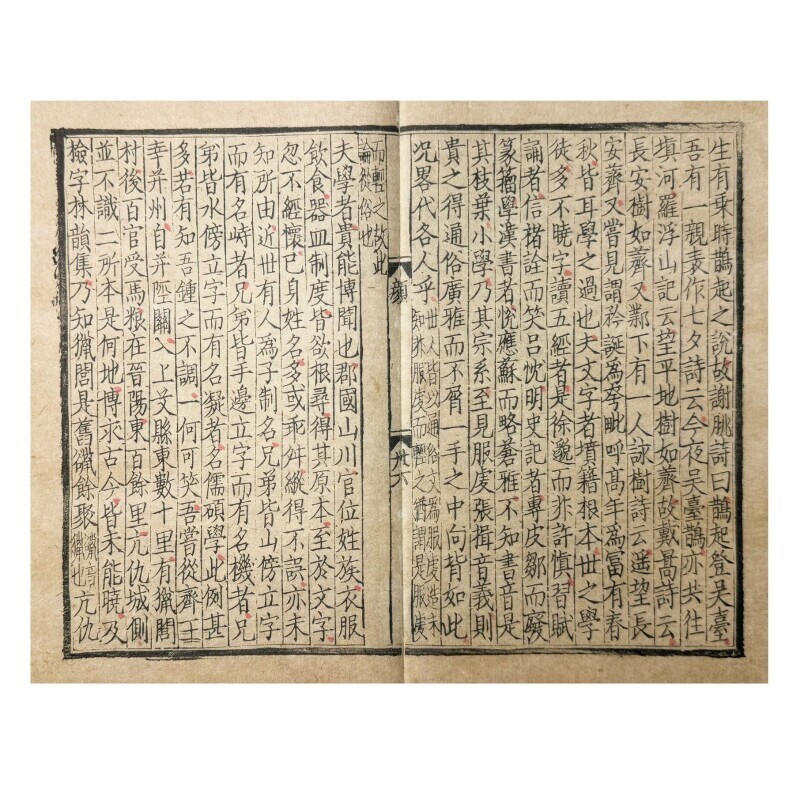 生有乗時鵲起之說故謝眺詩曰鵲起登吳臺
吾有一親表作七夕詩云今夜吳臺鵲亦共往
填河羅浮山記云望平地樹如薺故戴暠詩云
長安樹如薺又鄴下有一人詠樹詩云遥望長
安薺又嘗見謂矜誕爲夸毗呼高年爲富有春
秋皆耳學之過也夫文字者墳籍根本世之學
徒多不曉字讀五經者是徐邈而非許慎習賦
誦者信褚詮而笑吕忱明史記者專皮鄒而廢
篆籀學漢書者悅應蘇而略蒼雅不知書音是
其枝葉小學乃其宗系至見服虔張揖音義則
貴之得通俗廣雅而不屑一手之中向背如此
况畧代各人乎世人皆以通俗文爲服虔造未
知非服虔而輕之猶謂是服虔
顏
卅六
而輕之故此
論從俗也
夫學者貴能博聞也郡國山川官位姓族衣服
飲食器皿制度皆欲根尋得其原本至於文字
忽不經懷已身姓名多或乖舛縱得不誤亦未
知所由近世有人爲子制名兄弟皆山傍立字
而有名峙者兄弟皆手邊立字而有名機者兄
弟皆水傍立字而有名凝者名儒碩學此例甚
多若有知吾鍾之不調一何可笑吾嘗從齊主
幸并州自井陘關入上艾縣東數十里有獵閭
村後百官受馬粮在晉陽東百餘里亢仇城側
並不識二所本是何地博求古今皆未能曉及
檢字林韻集乃知獵閭是舊䝓餘聚獵音
䝓也亢仇